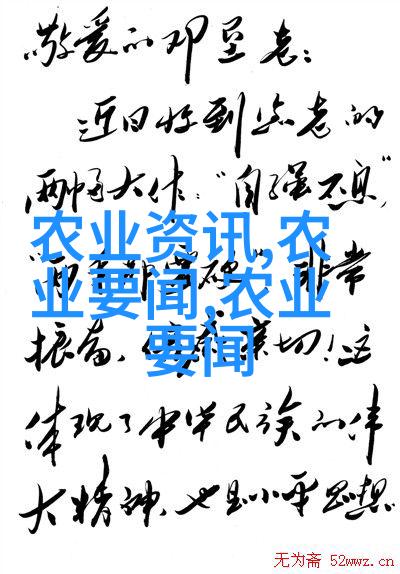 敬爱的邓垦老:
近日收到您老的
两幅大作:“自强不息”,
农业资讯,农
业要闻,农业
要闻
非常
振奋、亲切!这
体现了中华民族的伟
大精神,也是小平思想
无为斋 52wwz.cn